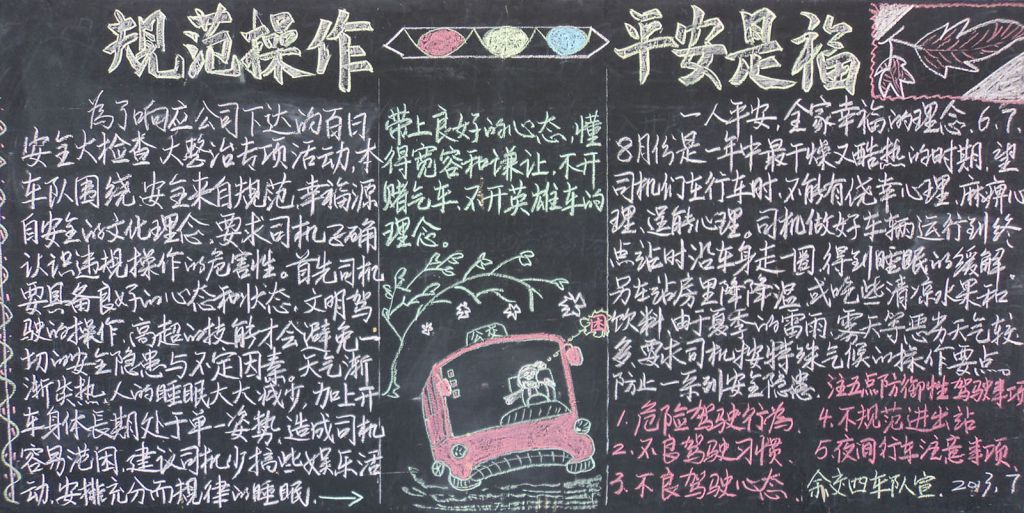 规范操作 平安是福
为了响应公司下达的百日
安全大检查、大整治专项活动,本
车队围绕,安全来自规范,幸福源
自安全的文化理念,要求司机正确
认识违规操作的危害性。首先司机
要具备良好的心态和状态,文明驾
驶的操作,高超的技能才会避免一
切的安全隐患与不定因素。天气渐
渐炎热,人的睡眠大大减少,加上开
车身体长期处于单一姿势,造成司机
容易泛困,建议司机少搞些娱乐活
动,安排充分而规律的睡眠.
带上良好的心态,懂
得宽容和谦让,不开
赌气车,不开英雄车的
理念。
困
一人平安,全家幸福的理念、6.7.
8月份是一年中最干燥又酷热的时期,望
司机们在行车时,不能有侥幸心理、麻痹心
理、逞能心理。司机做好车辆运行到终
点站时沿车身走一圈得到睡眠的缓解.
另在站房里降降温,或吃些清凉水果和
饮料,由于夏季的雷雨,雾天等恶劣天气较
多,要求司机按特殊气候的操作要点。
防止一系列安全隐患.
注五点防御性驾驶事项
1.危险驾驶行为
2.不良驾驶习惯、
3.不良驾驶心态、
4.不规范进出站
5.夜间行车注意事项
余交四车队宣.2013.7